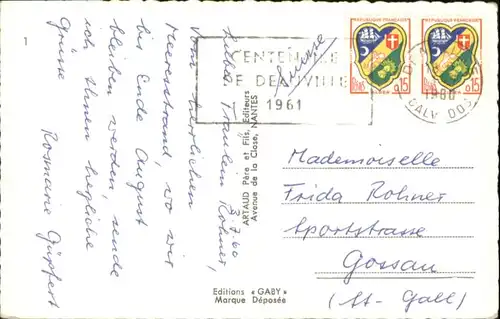 1
Liebe Fräulein Rohner,
3.7.60
Vom herrlichen
Meeresstrand, wo wir
bis Ende August
bleiben werden, sende
ich Ihnen herzliche
Grüsse
Rosmarie
ARTAUD Père et Fils, Editeurs
Avenue de la Close, NANTES
Editions « GABY »
Marque Déposée
CENTENAIRE
DE DEAUVILLE
1961
Suisse
REPUBLIQUE FRANÇAISE
0,15
REPUBLIQUE FRANÇAISE
0,15
1960
CALVADOS
Mademoiselle
Frida Rohner
Sportstrasse
Gossau
(St-Gall)